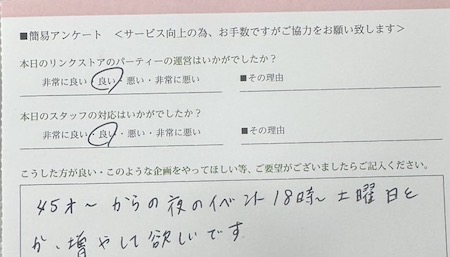 ■簡易アンケート ＜サービス向上の為、お手数ですがご協力をお願い致します＞
本日のリンクストアのパーティーの運営はいかがでしたか？
非常に良い・良い・悪い・非常に悪い ■その理由
本日のスタッフの対応はいかがでしたか？
非常に良い・良い・悪い・非常に悪い ■その理由
こうした方が良い・このような企画をやってほしい等、ご要望がございましたらご記入ください。
45才〜からの夜のイベント18時〜土曜日と
か、増やして欲しいです